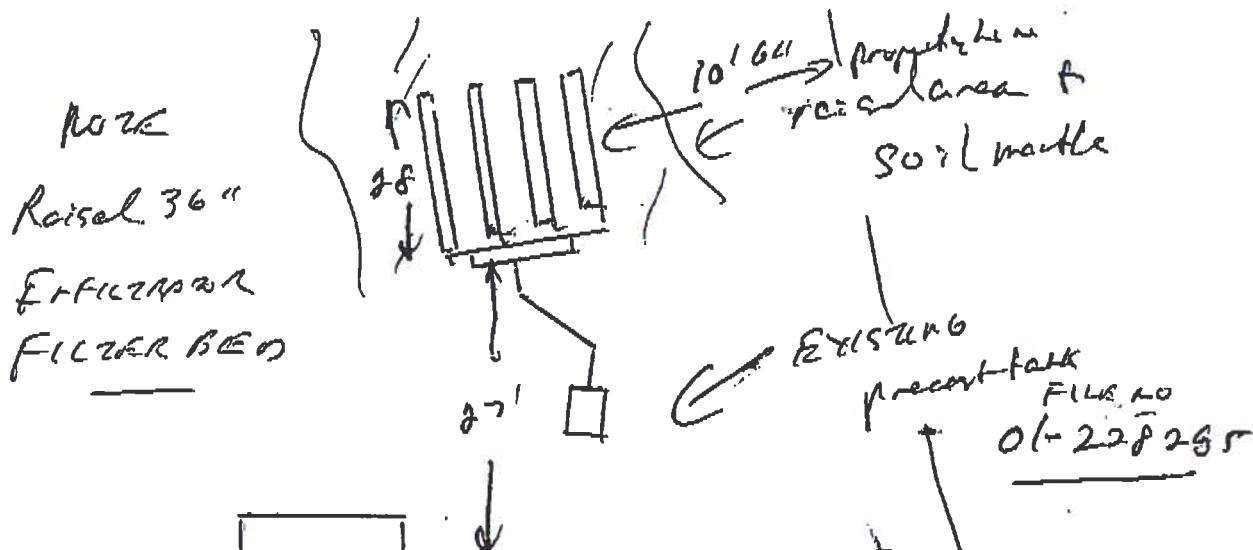 NOTE
Raised 36"
FILTER BED
28
10' 6"
property line
area &
soil mantle
27'
EXISTING
precast tank
FILE NO
01-228295